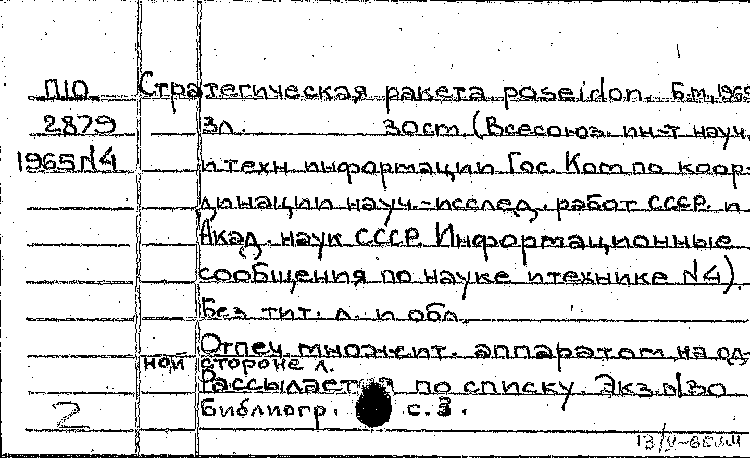 П10 Стратегическая ракета poseidon. Б.м., 1965
2879 3л. 30см. (Всесоюз. ин-т науч.
1965 №4 и техн. информации Гос. Ком по коор-
динации науч.-исслед. работ СССР. и
Акад. наук СССР. Информационные
сообщения по науке и технике №4).
Без тит. л. и обл.
Отпеч. множит. аппаратом на од-
ной стороне л.
Рассылается по списку. Экз.
2 Библиогр. с. 3.